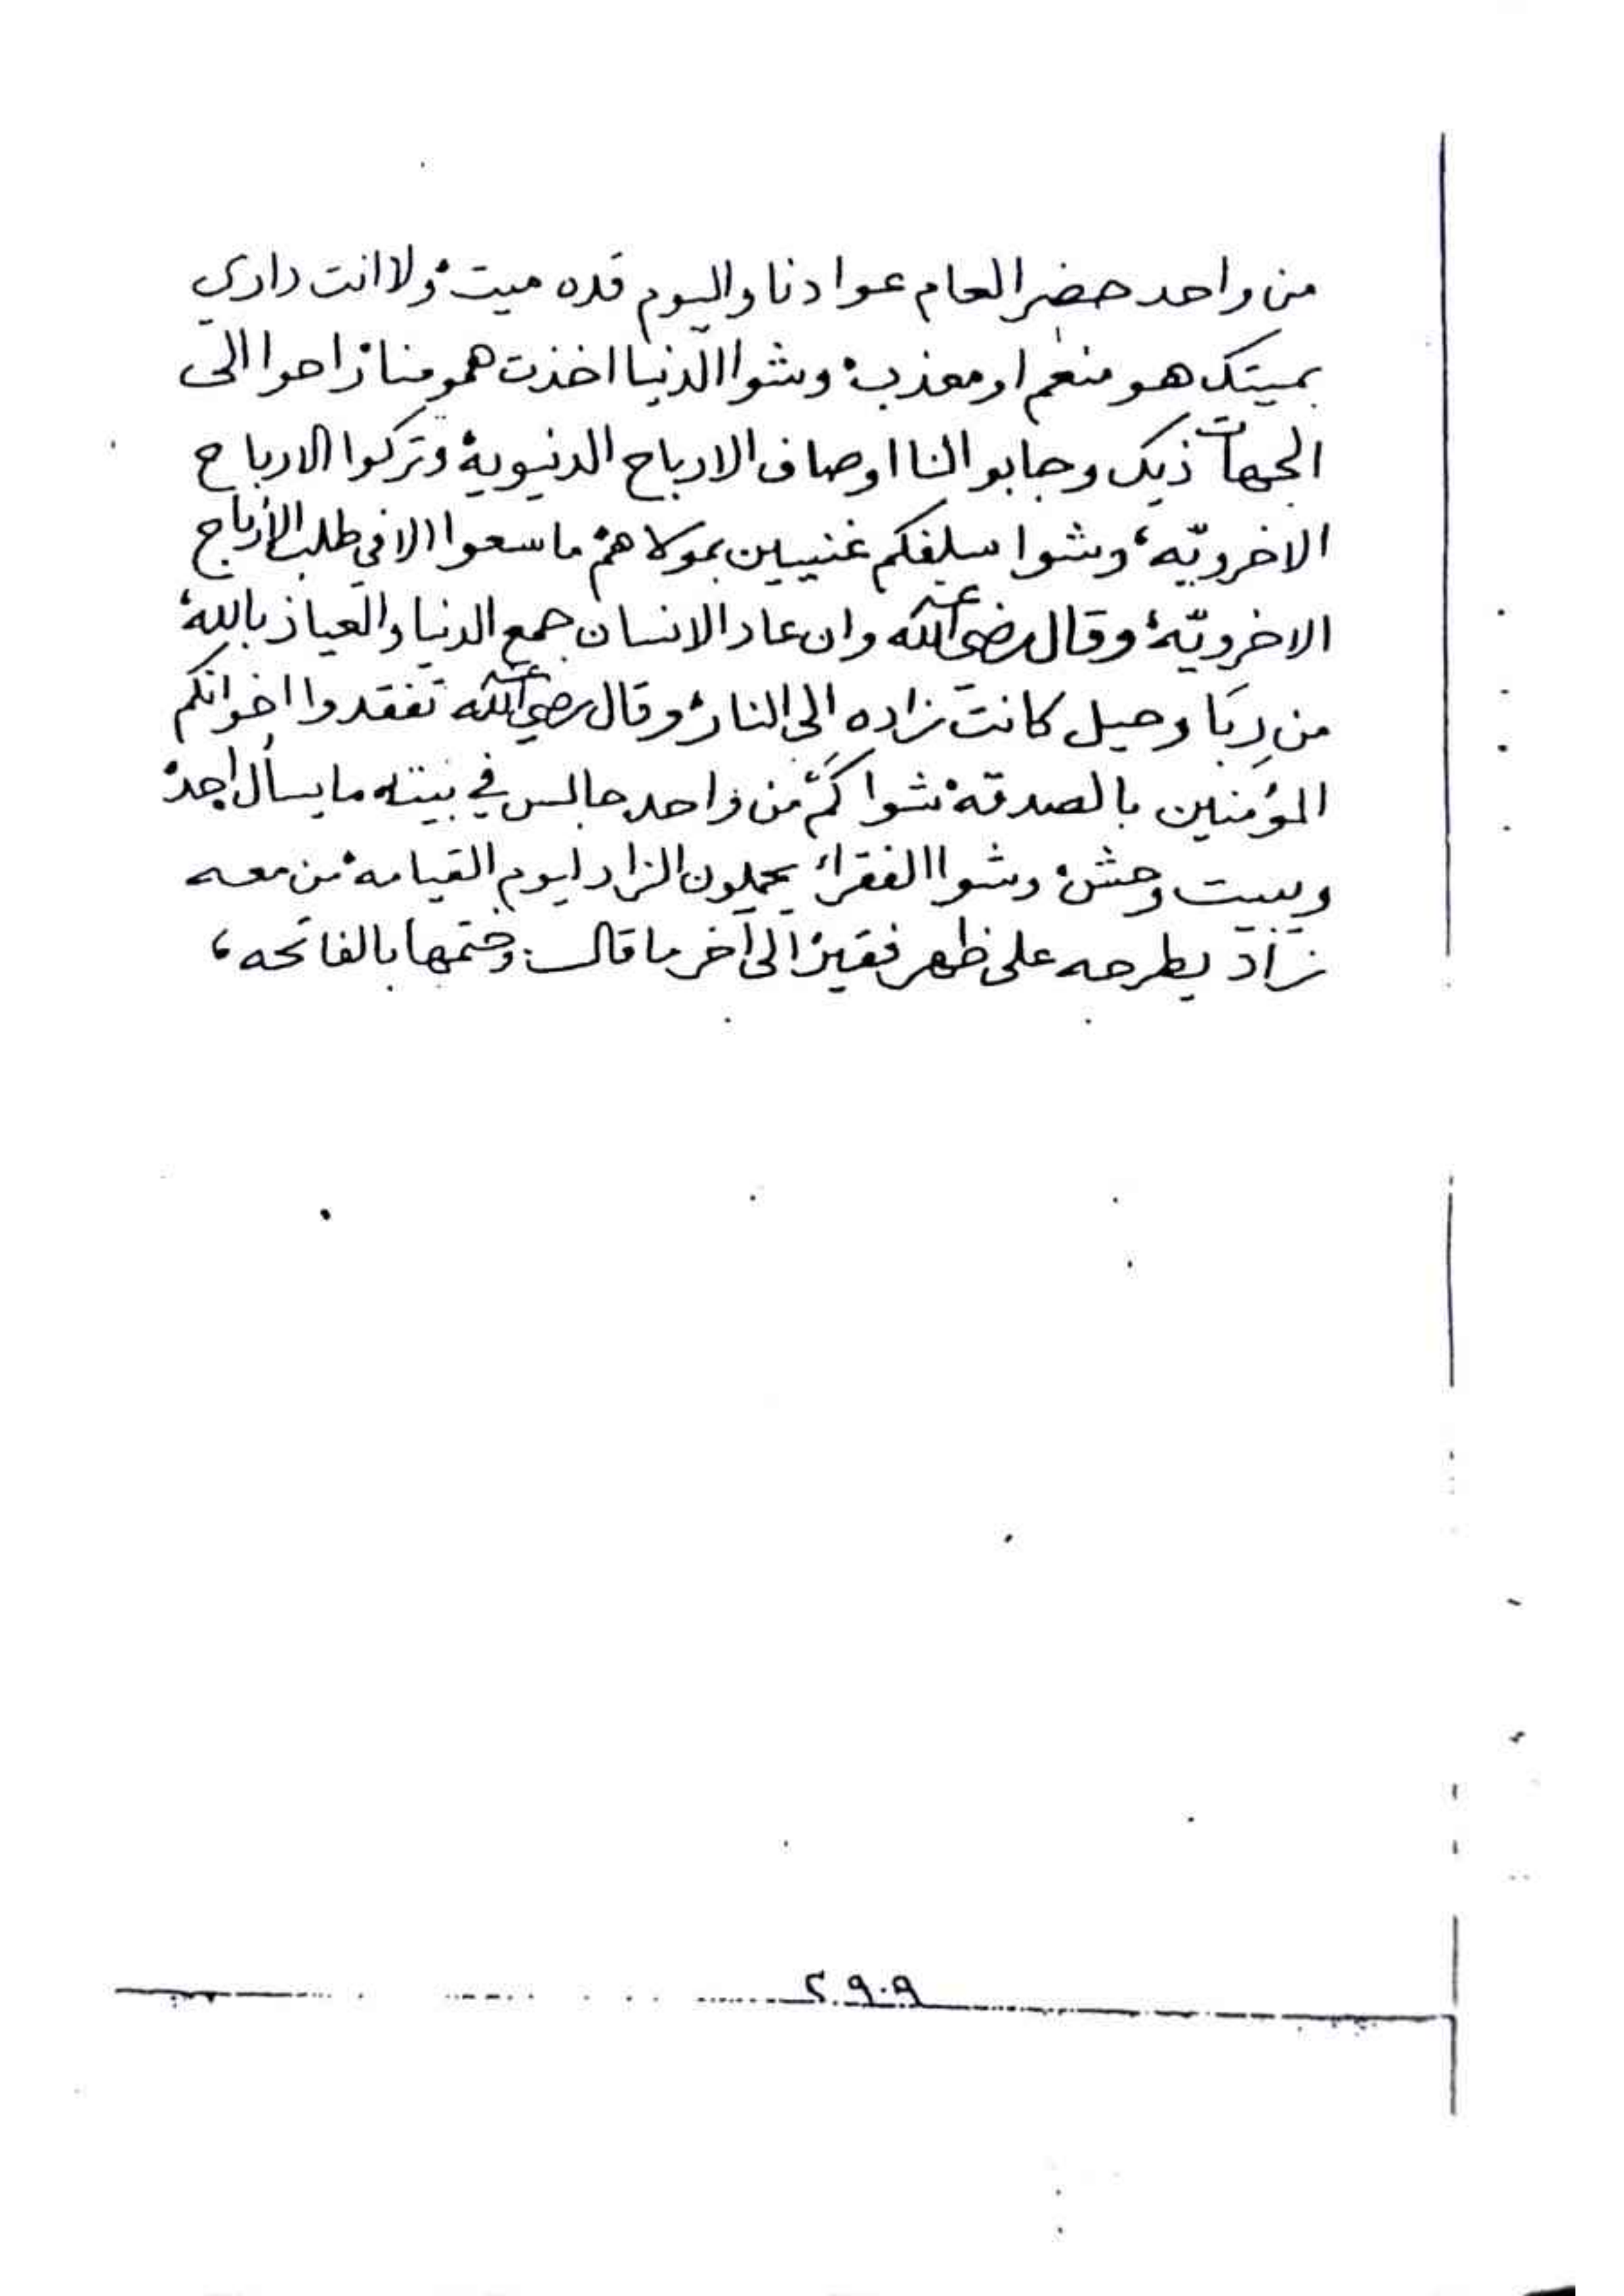 من واحد حضر العام عوادنا واليوم قده ميت، ولا انت داري
بميتك هو منعم او معذب، وشوا الدنيا اخذت همومنا راحوا الى
الجهات ذيك وجابوا لنا اوصاف الارباح الدنيوية وتركوا الارباح
الاخرويّه، وشوا سلفكم غنيين بمولاهم، ما سعوا الا في طلب الأرباح
الاخرويّة، وقال رضي الله عنه وان عاد الانسان جمع الدنيا والعياذ بالله،
من رِبَا وحيل كانت زاده الى النار، وقال رضي الله عنه تفقدوا اخوانكم
المؤمنين بالصدقة، شوا كَمْ من واحد جالس في بيته ما يسأل احد،
ويبيت وحش، وشوا الفقراء يحملون الزاد ليوم القيامة، من معه
زاد يطرحه على ظهر فقير، الى آخر ما قال، وختمها بالفاتحه،
٢٩٠٩